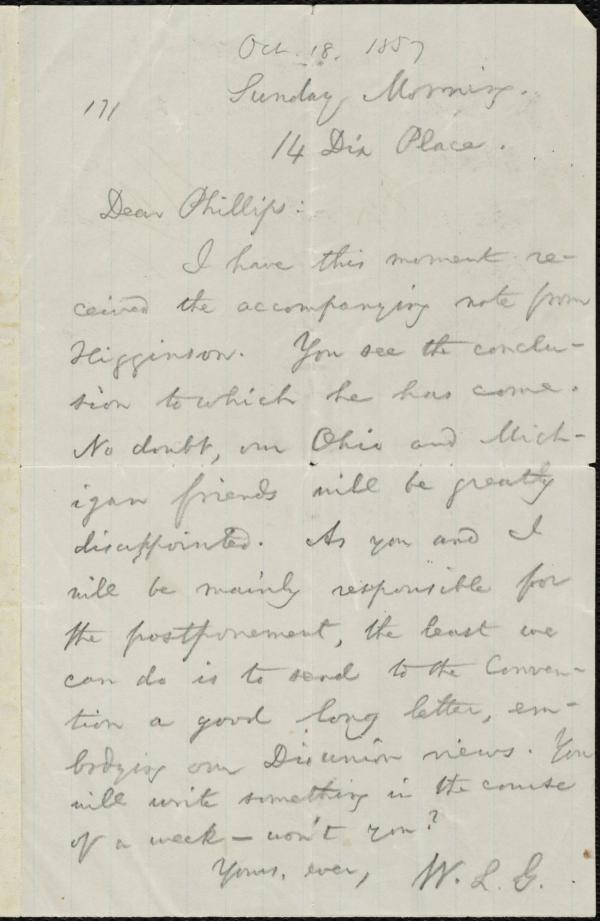 Oct. 18. 1857
Sunday Morning.
171
14 Dix Place.
Dear Phillips:
I have this moment re-
ceived the accompanying note from
Higginson. You see the conclu-
sion to which he has come.
No doubt, our Ohio and Mich-
igan friends will be greatly
disappointed. As you and I
will be mainly responsible for
the postponement, the least we
can do is to send to the Conven-
tion a good long letter, em-
bodying our Disunion views. You
will write something in the course
of a week — won't you?
Yours, ever, W. L. G.